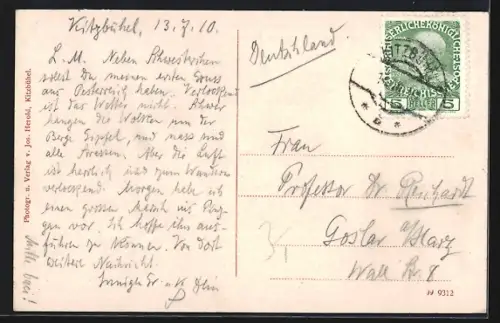 Kitzbühel, 13.7.10.
L. M. Neben Schwesterchen
sollst Du meinen ersten Gruss
aus Oesterreich haben. Verlockend
ist das Wetter nicht. Schwer
hangen die Wolken um der
Berge Gipfel, und nass sind
alle Strassen. Aber die Luft
ist herrlich und zum Wandern
verlockend. Morgen habe ich
einen grossen Marsch ins
gen vor. Ich hoffe ihn aus-
führen zu können. Von dort
weitere Nachricht.
Innigste Gr. u. K. Dein
Bitte
Deutschland.
KAISERLICHEKÖNIGLICHE
ÖSTERREICHISCHE
5 HELLER 5
KITZBÜHEL
* b *
Frau
Professor Dr. Reichardt
Goslar a/Harz
Wall Str 8
Photogr. u. Verlag v. Jos. Herold, Kitzbühel.
9312